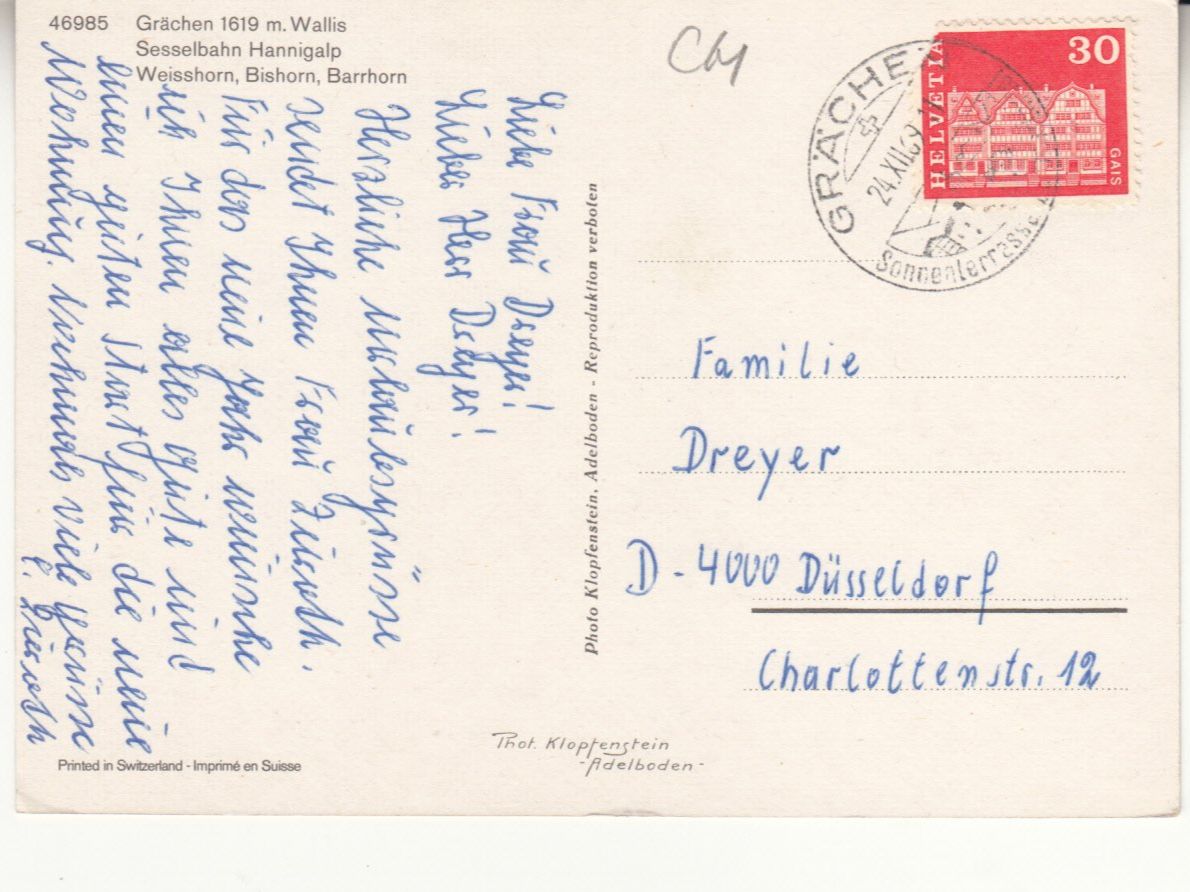 46985 Grächen 1619 m. Wallis
Sesselbahn Hannigalp
Weisshorn, Bishorn, Barrhorn
Liebe Frau Dreyer!
Lieber Herr Dreyer!
Herzliche Urlaubsgrüsse
sendet Ihnen Frau
Für das neue Jahr wünsche
ich Ihnen alles gute und
einen guten Start für die neue
Wohnung. Nochmals viele grüsse
Printed in Switzerland - Imprimé en Suisse
Photo Klopfenstein, Adelboden - Reproduktion verboten
Phot. Klopfenstein
-Adelboden-
CH
HELVETIA
30
GAIS
GRÄCHEN
24.XII.69
Sonnenterrasse
Familie
Dreyer
D-4000 Düsseldorf
Charlottenstr. 12